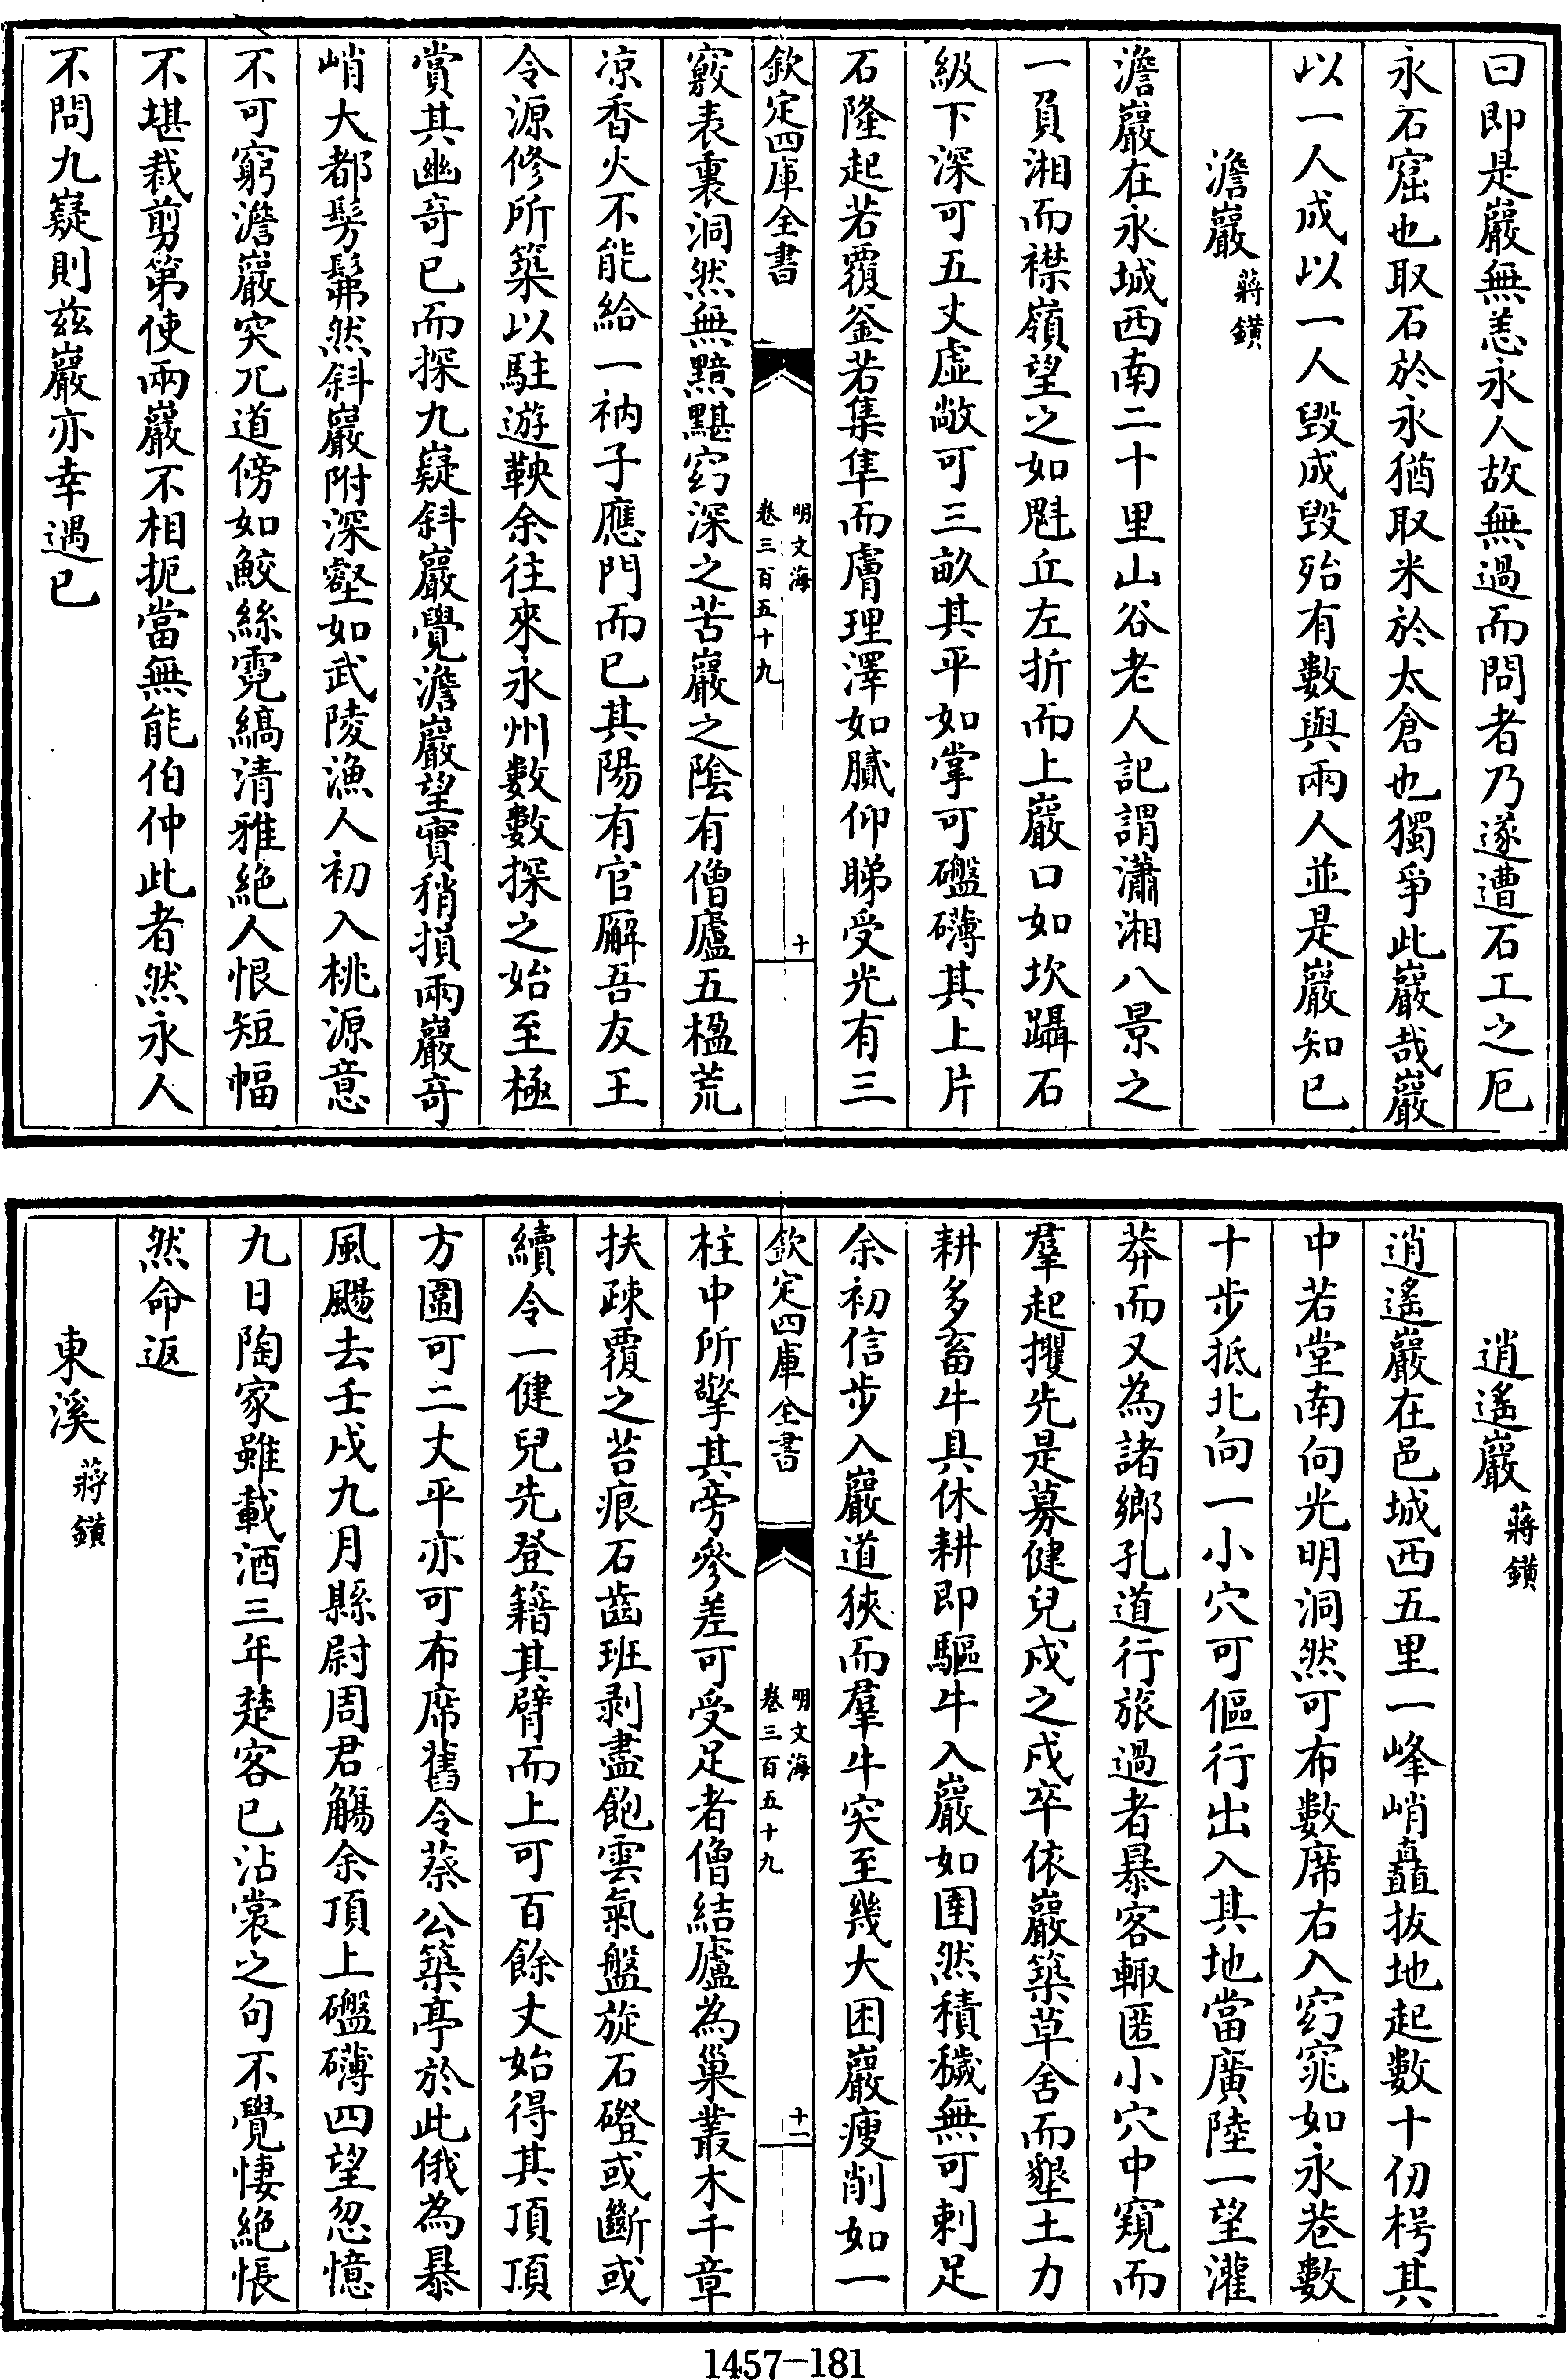 曰即是巖無恙永人故無過而問者乃遂遭石工之厄
永石窟也取石於永猶取米於太倉也獨爭此巖哉巖
以一人成以一人毀成毀殆有數與兩人並是巖知已
澹巖蔣鐄
澹巖在永城西南二十里山谷老人記謂瀟湘八景之
一負湘而襟嶺望之如魁丘左折而上巖口如坎躡石
級下深可五丈虛敞可三畝其平如掌可礚礴其上片
石隆起若覆釜若集隼而膚理澤如膩仰睇受光有三
欽定四庫全書
明文海
卷三百五十九
十
竅表裏洞然無黯黮窈深之苦巖之陰有僧廬五楹荒
凉香火不能給一衲子應門而已其陽有官廨吾友王
令源修所築以駐遊鞅余往來永州數數探之始至極
賞其幽奇已而探九嶷斜巖覺澹巖望實稍損兩巖奇
峭大都髣髴然斜巖附深壑如武陵漁人初入桃源意
不可窮澹巖突兀道傍如鮫絲霓縞清雅絶人恨短幅
不堪裁剪第使兩巖不相扼當無能伯仲此者然永人
不問九嶷則兹巖亦幸遇已
逍遙巖蔣鐄
逍遙巖在邑城西五里一峰峭矗拔地起數十仞枵其
中若堂南向光明洞然可布數席右入窈窕如永巷數
十步抵北向一小穴可傴行出入其地當廣陸一望灌
莽而又為諸鄉孔道行旅過者暴客輙匿小穴中窺而
羣起攫先是募健兒戍之戍卒依巖築草舍而墾土力
耕多畜牛具休耕即驅牛入巖如圉然積穢無可剌足
余初信步入巖道狹而羣牛突至幾大困巖瘦削如一
欽定四庫全書
明文海
卷三百五十九
十一
柱中所擎其旁參差可受足者僧結廬為巢叢木千章
扶疎覆之苔痕石齒班剥盡飽雲氣盤旋石磴或斷或
續令一健兒先登籍其臂而上可百餘丈始得其頂頂
方圓可二丈平亦可布席舊令蔡公築亭於此俄為暴
風颺去壬戌九月縣尉周君觴余頂上礚礴四望忽憶
九日陶家雖載酒三年楚客已沾裳之句不覺悽絶悵
然命返
東溪蔣鐄
1457-181